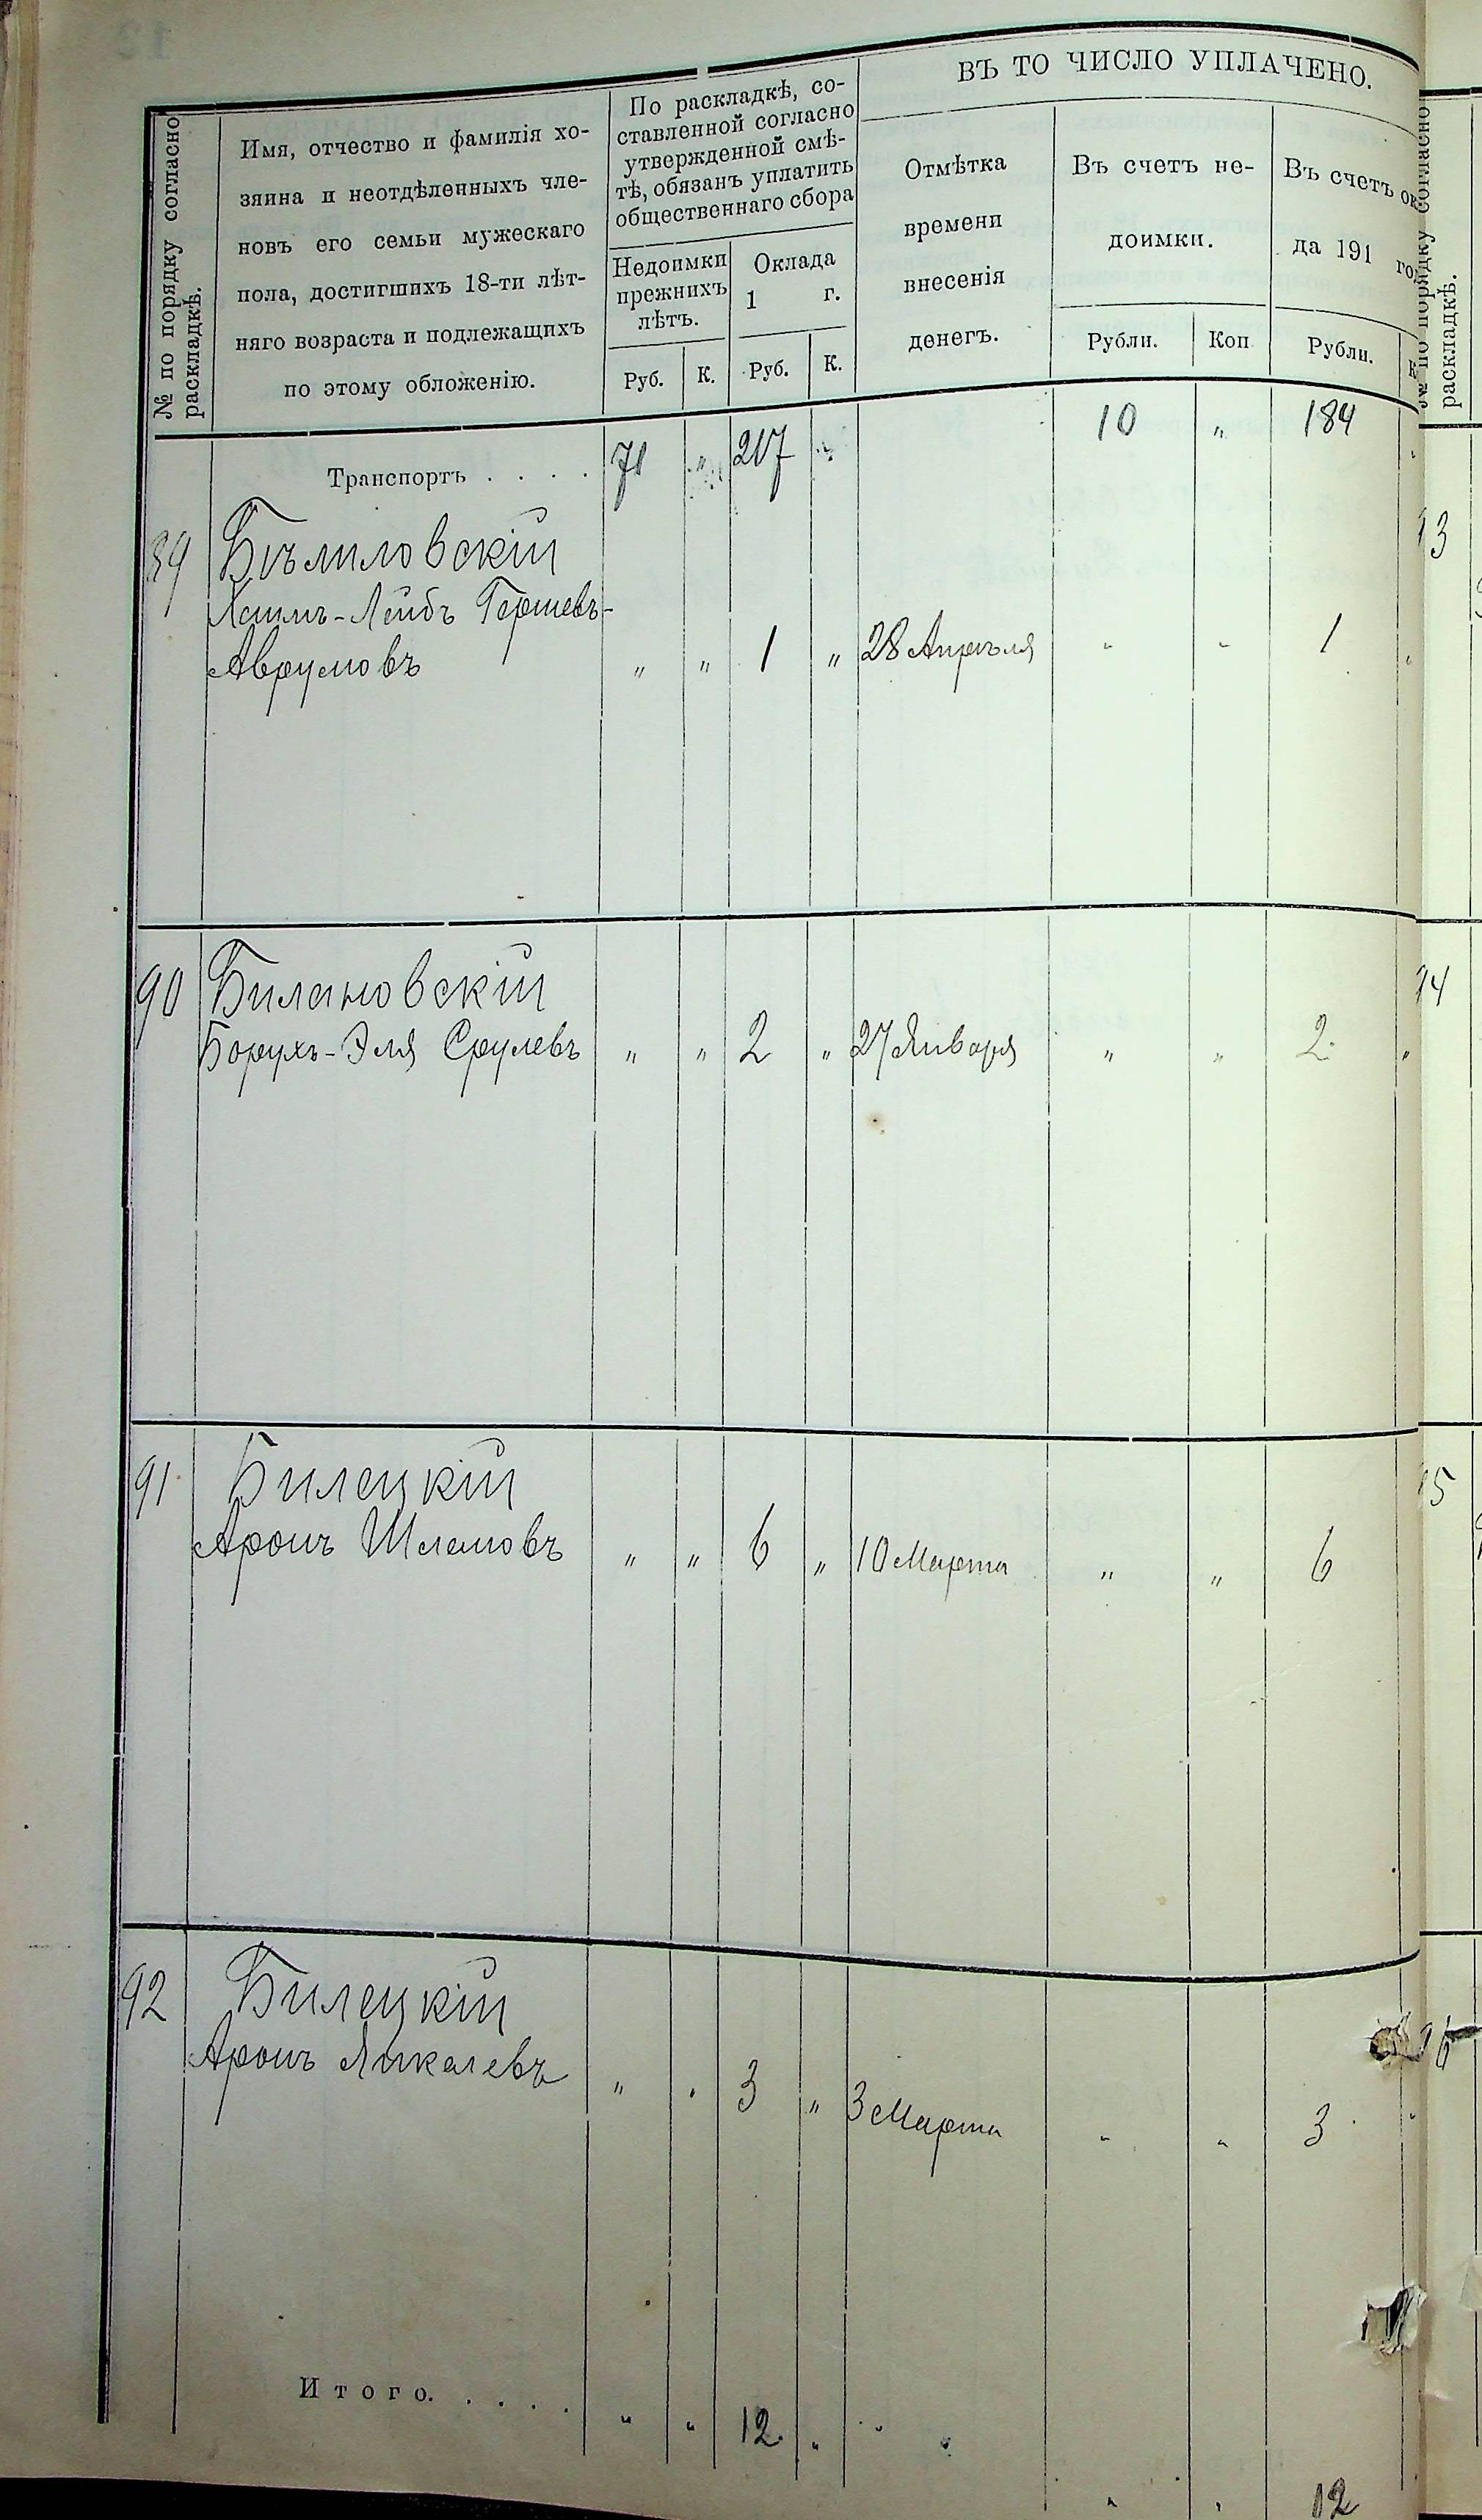 № по порядку согласно
раскладкѣ.
Имя, отчество и фамилія хо-
зяина и неотдѣленныхъ чле-
новъ его семьи мужескаго
пола, достигшихъ 18-ти лѣт-
няго возраста и подлежащихъ
по этому обложенію.
По раскладкѣ, со-
ставленной согласно
утвержденной смѣ-
тѣ, обязанъ уплатить
общественнаго сбора
Недоимки
прежнихъ
лѣтъ.
Оклада
1 г.
Руб. К. Руб. К.
ВЪ ТО ЧИСЛО УПЛАЧЕНО.
Отмѣтка
времени
внесенія
денегъ.
Въ счетъ не-
доимки.
Рубли. Коп
Въ счетъ ок
да 191 го
Рубли. К
Транспортъ . . . . 71 " 217 " 10 " 184
89 Бѣлиловскій
Хаимъ-Лейбъ Гершевъ-
Аврумовъ " " 1 " 28 Апрѣля " " 1 "
90 Билановскій
Борухъ-Эля Срулевъ " " 2 " 27 Января " " 2 "
91 Билецкій
Аронъ Шлемовъ " " 6 " 10 Марта " " 6
92 Билецкій
Аронъ Янкелевъ " " 3 " 3 Марта " " 3 "
Итого. . . . . " " 12 " " " " " 12
№ по порядку согласно
раскладкѣ.
93
94
95
96